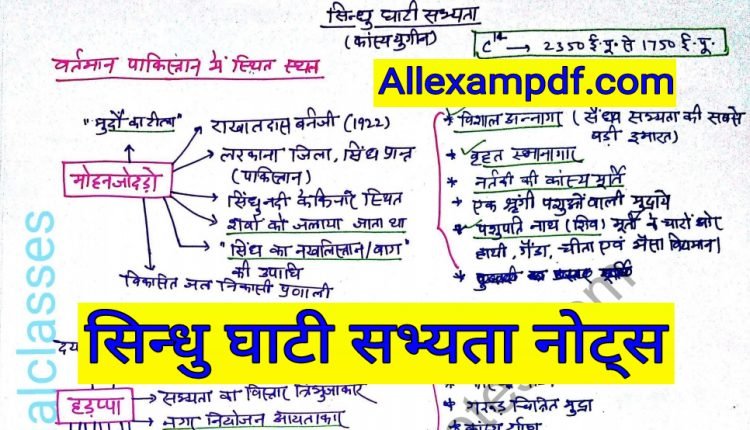 सिन्धु घाटी सभ्यता
(कांस्ययुगीन)
C¹⁴ → 2350 ई.पू. से 1750 ई.पू.
वर्तमान पाकिस्तान में स्थित स्थल
Allexampdf.com
"मुर्दों का टीला"
मोहनजोदड़ो
राखालदास बनर्जी (1922)
लरकाना जिला, सिंध प्रान्त
(पाकिस्तान)
सिंधु नदी के किनारे स्थित
शवों को जलाया जाता था
"सिंध का नखलिस्तान/बाग"
की उपाधि
विकसित जल निकासी प्रणाली
* विशाल अन्नागार (सैंधव सभ्यता की सबसे
बड़ी इमारत)
* वृहत स्नानागार
* नर्तकी की कांस्य मूर्ति
* एक श्रृंगी पशुओं वाली मुद्रायें
* पशुपति नाथ (शिव) मूर्ति के चारों ओर
हाथी, गैंडा, चीता एवं भैंसा विद्यमान।
सिन्धु घाटी सभ्यता नोट्स
alclasses
हड़प्पा
सभ्यता का विस्तार त्रिभुजाकार
नगर नियोजन आयताकार
गरुड़ चित्रित मुद्रा